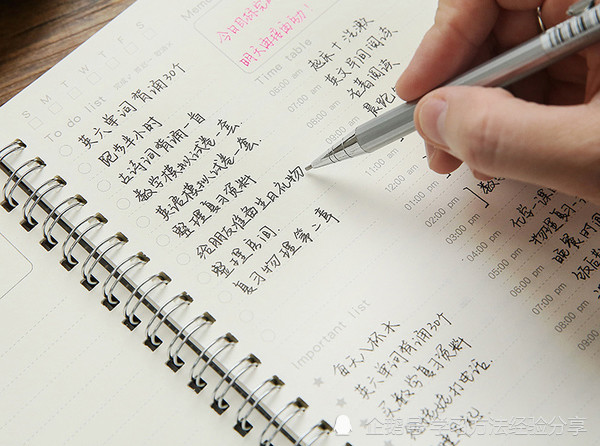 S M T F S
Memo
今日尽
明天再接再励！
To do list
英六单词背诵30个
跑步半小时
古诗词背诵一首
数学模拟试卷一套
英语模拟试卷一套.
整理复习资料
给朋友准备生日礼物
整理房间
复习物理第二章
Time table
06:00 am
07:00 am
08:00 am
09:00
11:00 am
12:00 am
01:00 pm
02:00 pm
03:00 pm
04:00 pm
05:00 pm
06:00 pm
07:00 pm
08:00 pm
09:00
起床十洗漱
英文导间阅读
名著阅读
晨跑
数
化学一课
物理复习
晚餐时间
饭后
Important list
每天八杯水
英六单词背诵30个
买数学复习资料
打电话.
企鹅号 学习方法经验分享